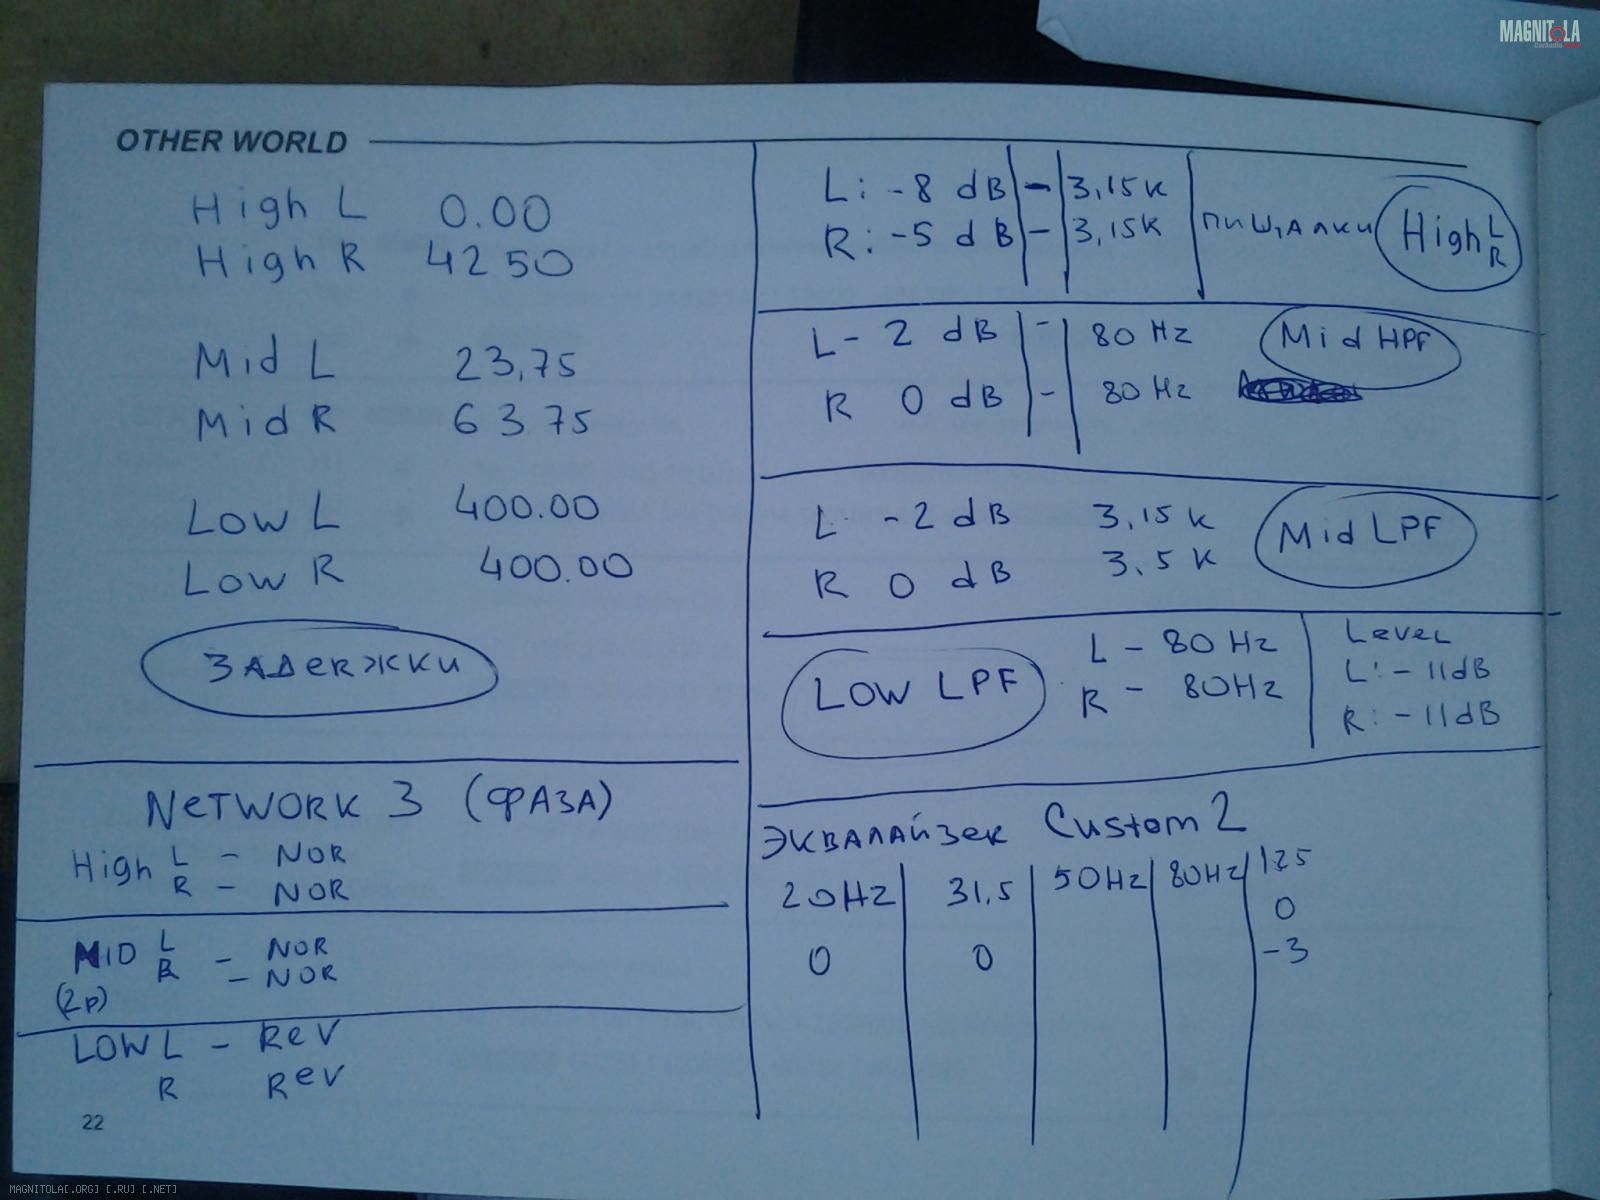 MAGNITOLA
OTHER WORLD
High L 0.00
High R 42.50
Mid L 23,75
Mid R 63.75
Low L 400.00
Low R 400.00
ЗАДержки
NeTWORK 3 (ФАЗА)
High L - NOR
R - NOR
MID L - NOR
R - NOR
(2p)
LOW L - ReV
R ReV
22
L: -8 dB - 3,15K
R: -5 dB - 3,15K
ПИЩАЛКИ High L R
L - 2 dB - 80 Hz Mid HPF
R 0 dB - 80 Hz
L -2 dB 3,15K Mid LPF
R 0 dB 3.5 K
LOW LPF L - 80 Hz
R - 80Hz
Level
L: - 11dB
R: - 11dB
ЭКВАЛАЙЗеК Custom 2
20Hz 31,5 50Hz 80Hz 125
0
0 0 -3
MAGNITOLA[.ORG] [.RU] [.NET]